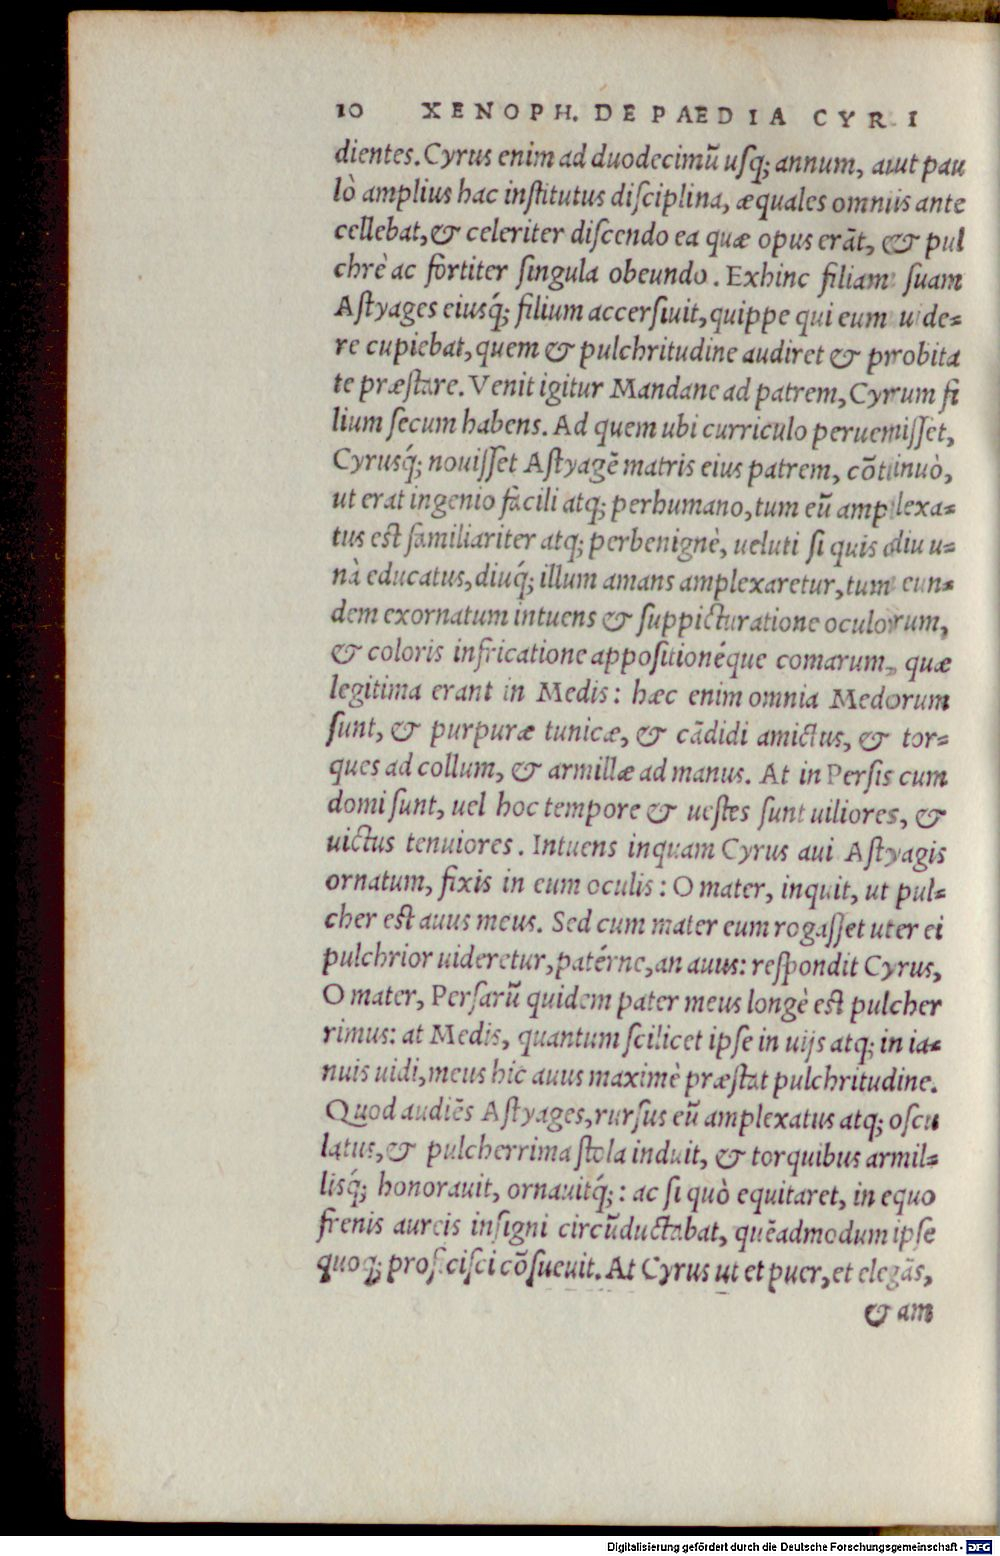 10 XENOPH. DE PAEDIA CYRI
dientes. Cyrus enim ad duodecimũ usq; annum, aut pau
lò amplius hac institutus disciplina, æquales omnis ante
cellebat, & celeriter discendo ea quæ opus erãt, & pul
chrè ac fortiter singula obeundo. Exhinc filiam suam
Astyages eiusq́; filium accersiuit, quippe qui eum uide-
re cupiebat, quem & pulchritudine audiret & probita
te præstare. Venit igitur Mandane ad patrem, Cyrum fi
lium secum habens. Ad quem ubi curriculo peruenisset,
Cyrusq́; nouisset Astyagẽ matris eius patrem, cõtinuò,
ut erat ingenio facili atq; perhumano, tum eũ amplexa-
tus est familiariter atq; perbenignè, ueluti si quis diu u-
nà educatus, diuq́; illum amans amplexaretur, tum eun-
dem exornatum intuens & suppicturatione oculorum,
& coloris infricatione appositionéque comarum, quæ
legitima erant in Medis: hæc enim omnia Medorum
sunt, & purpuræ tunicæ, & cãdidi amictus, & tor-
ques ad collum, & armillæ ad manus. At in Persis cum
domi sunt, uel hoc tempore & uestes sunt uiliores, &
uictus tenuiores. Intuens inquam Cyrus aui Astyagis
ornatum, fixis in eum oculis: O mater, inquit, ut pul-
cher est auus meus. Sed cum mater eum rogasset uter ei
pulchrior uideretur, patérne, an auus: respondit Cyrus,
O mater, Persarũ quidem pater meus longè est pulcher
rimus: at Medis, quantum scilicet ipse in uijs atq; in ia-
nuis uidi, meus hic auus maximè præstat pulchritudine.
Quod audiẽs Astyages, rursus eũ amplexatus atq; oscu
latus, & pulcherrima stola induit, & torquibus armil-
lisq́; honorauit, ornauitq́;: ac si quò equitaret, in equo
frenis aureis insigni circũductabat, quẽadmodum ipse
quoq; proficisci cõsueuit. At Cyrus ut et puer, et elegãs,
& am
Digitalisierung gefördert durch die Deutsche Forschungsgemeinschaft - DFG